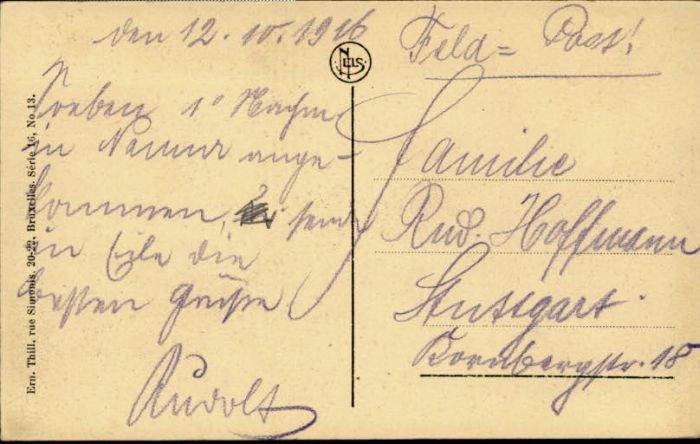 den 12. 10. 1916
Feld= Post!
NELS
Soeben 1° Nachm.
in Namur ange-
kommen, sende
in Eile die
besten Grüße
Rudolf
Familie
Rud. Hoffmann
Stuttgart.
Kornbergstr. 18
Ern. Thill, rue Simonis, 20-22, Bruxelles. Série 16, No. 13.